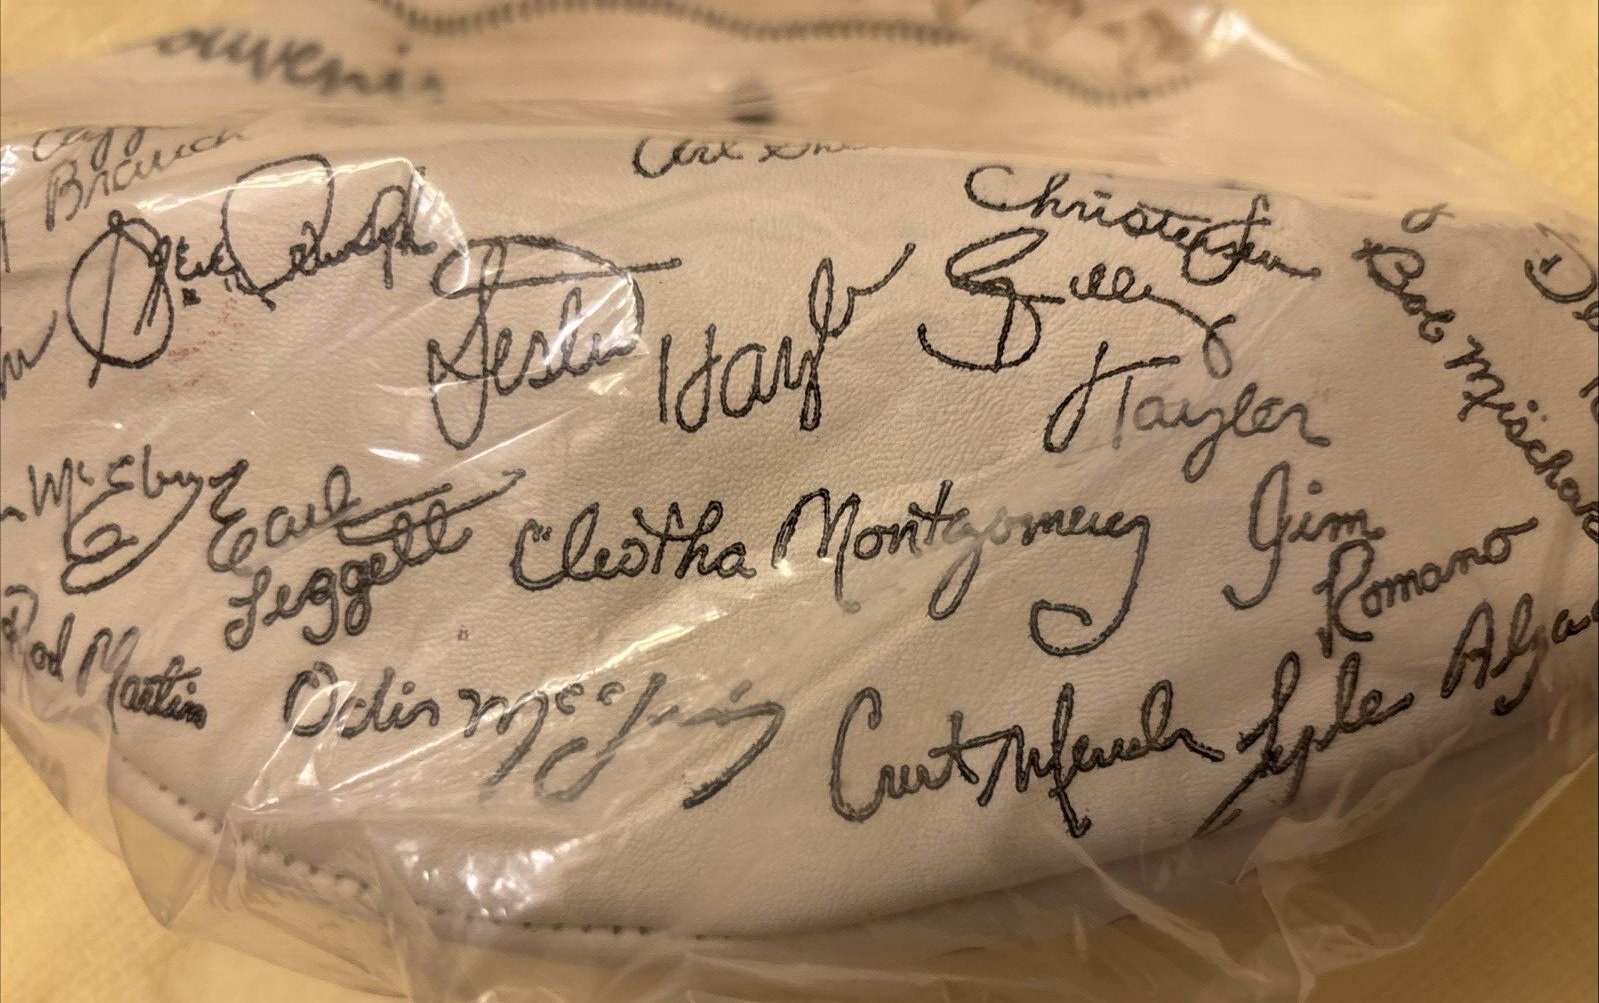 ouvenir
Branch
Carl
Christensen
Steve
Lester
Hayes
Billy
Taylor
Bob Mischak
McElroy
Earl
Leggett
Cleotha Montgomery
Jim
Romano
Rod Martin
Odis McKinney
Curt Marsh
Lyle Alzado